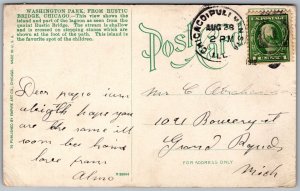 WASHINGTON PARK, FROM RUSTIC
BRIDGE, CHICAGO.—This view shows the
island and part of the lagoon as seen from the
quaint Rustic Bridge. The stream is shallow
and is crossed on stepping stones which are
shown at the foot of the path. This island is
the favorite spot of the children.
Post
CHICAGO, PULLMAN STA.
AUG 28
2 PM
ILL.
1 CENT 1
Dear
hope you
are the same ill
worn but home
love from
Alma
Mr. C
1021 Bowery st
Grand Rapids
Mich
FOR ADDRESS ONLY